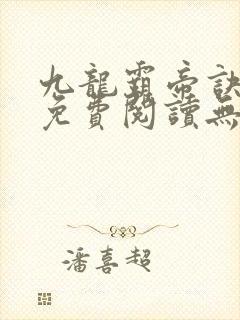 九龍霸帝訣
免費閱讀無
潘喜超